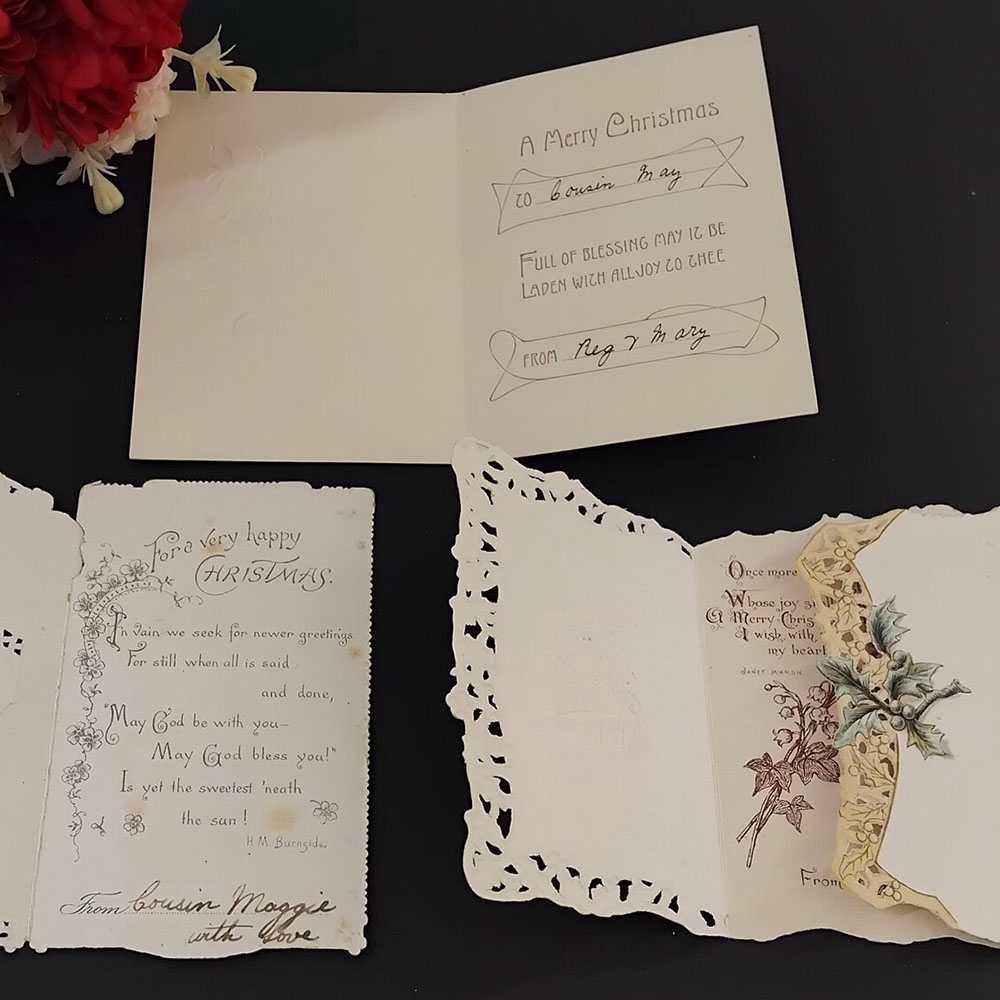 A Merry Christmas
TO Cousin May
FULL OF BLESSING MAY IT BE
LADEN WITH ALL JOY TO THEE
FROM Reg & Mary
For a very happy
CHRISTMAS.
In vain we seek for newer greetings
For still when all is said
and done,
"May God be with you—
May God bless you!"
Is yet the sweetest 'neath
the sun!
H. M. Burnside.
From Cousin Maggie
with Love
Once more
Whose joy
A Merry Chris
I wish, with
my heart
JANET MARSH.
From